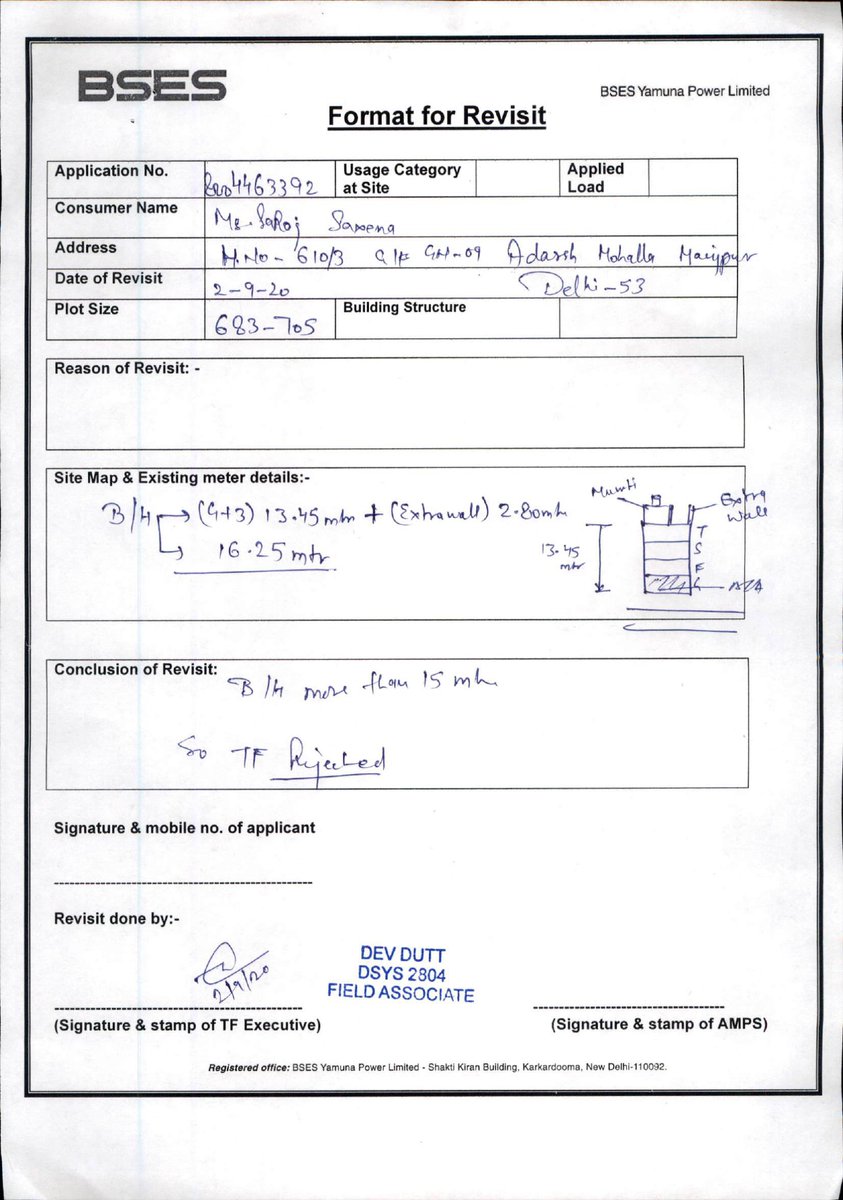 BSES
BSES Yamuna Power Limited
Format for Revisit
Application No. 8004463392 Usage Category at Site Applied Load
Consumer Name Ms. Saroj Saxena
Address H.No - 610/3 G/F GH-09 Adarsh Mohalla Maujpur
Date of Revisit 2-9-20 Delhi-53
Plot Size 683-705 Building Structure
Reason of Revisit: -
Site Map & Existing meter details:-
B/H → (G+3) 13.45 mtr + (Extra wall) 2.80 mtr
→ 16.25 mtr
Mumti
Extra wall
13.45 mtr
T
S
F
G
Conclusion of Revisit:
B/H more than 15 mtr
So TF Rejected
Signature & mobile no. of applicant
Revisit done by:-
2/9/20
DEV DUTT
DSYS 2804
FIELD ASSOCIATE
(Signature & stamp of TF Executive)
(Signature & stamp of AMPS)
Registered office: BSES Yamuna Power Limited - Shakti Kiran Building, Karkardooma, New Delhi-110092.